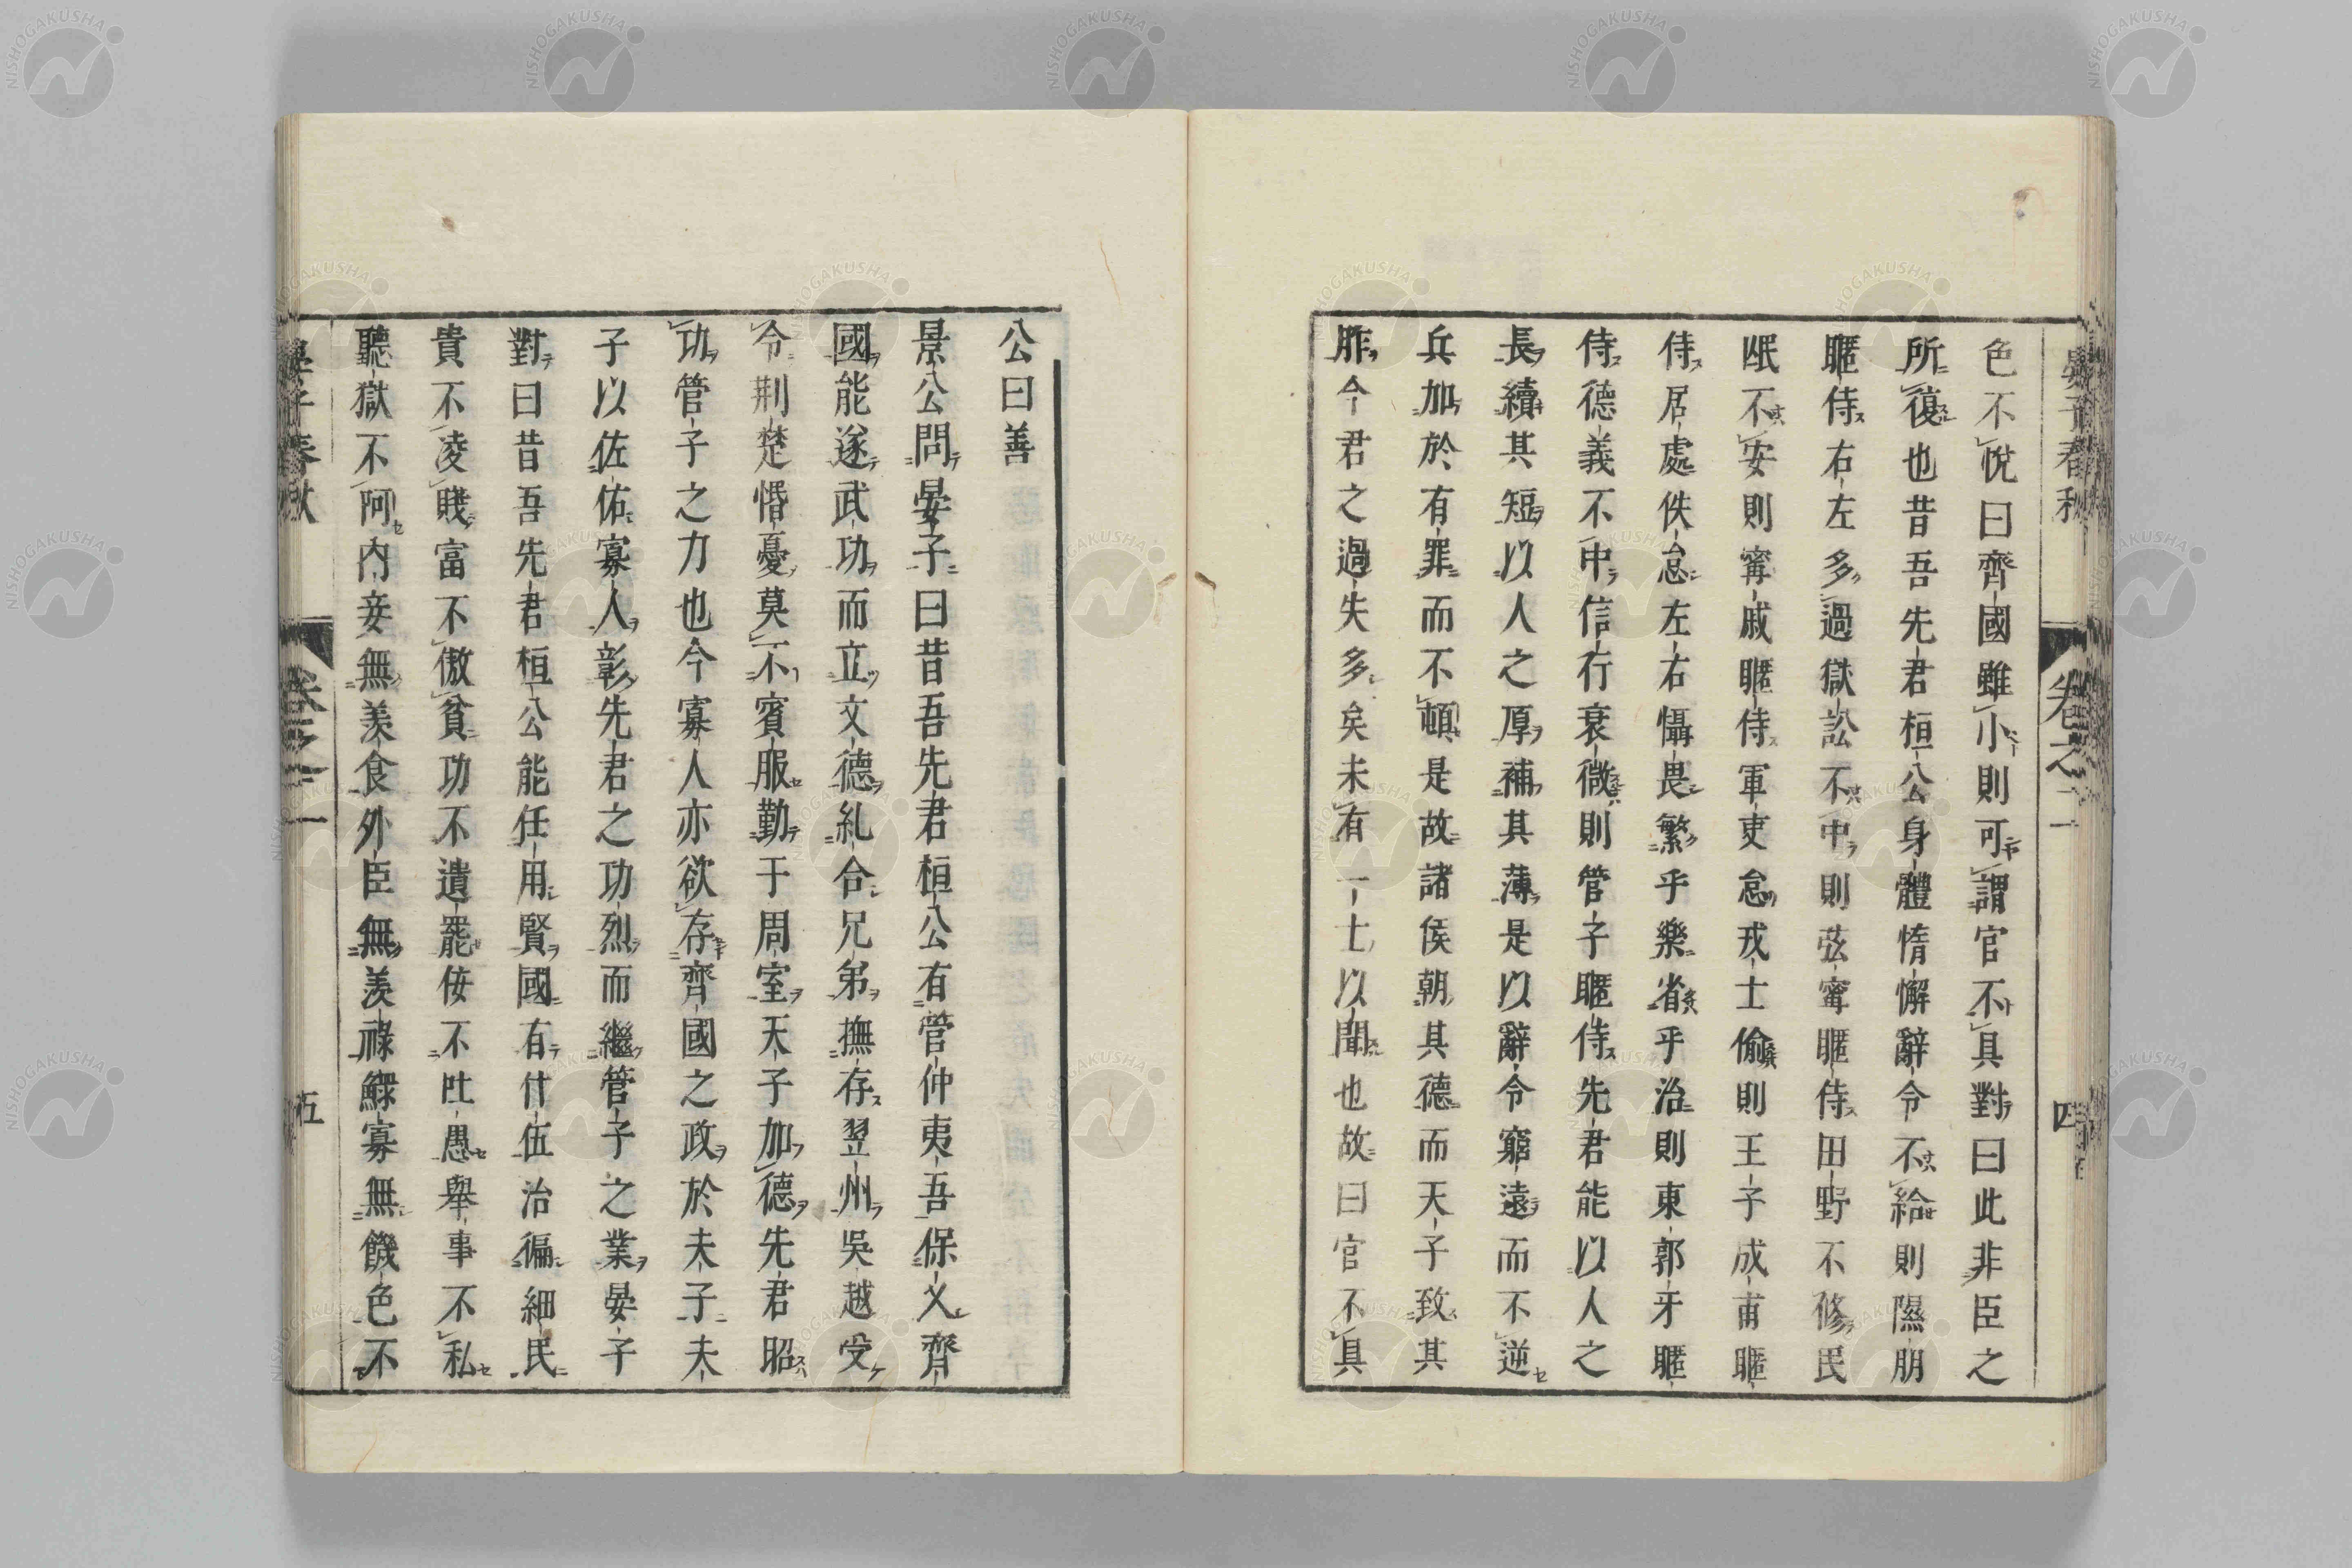 晏子春秋 卷之二 四
色不悅曰齊國雖小則可謂官不具對曰此非臣之
所復也昔吾先君桓公身體惰懈辭令不給則隰朋
暱侍右左多過獄訟不中則弦甯暱侍田野不修民
氓不安則甯戚暱侍軍吏怠戎士偷則王子成甫暱
侍居處佚怠左右懾畏繁乎樂省乎治則東郭牙暱
侍德義不中信行衰微則管子暱侍先君能以人之
長續其短以人之厚補其薄是以辭令窮遠而不逆
兵加於有罪而不頓是故諸侯朝其德而天子致其
胙今君之過失多矣未有一士以聞也故曰官不具
公曰善
景公問晏子曰昔吾先君桓公有管仲夷吾保乂齊
國能遂武功而立文德糺合兄弟撫存翌州吳越受
令荆楚惛憂莫不賓服勤于周室天子加德先君昭
功管子之力也今寡人亦欲存齊國之政於夫子夫
子以佐佑寡人彰先君之功烈而繼管子之業晏子
對曰昔吾先君桓公能任用賢國有什伍治徧細民
貴不凌賤富不傲貧功不遺罷佞不吐愚舉事不私
聽獄不阿內妾無羨食外臣無羨祿鰥寡無饑色不
晏子春秋 卷之二 五
NISHOGAKUSHA